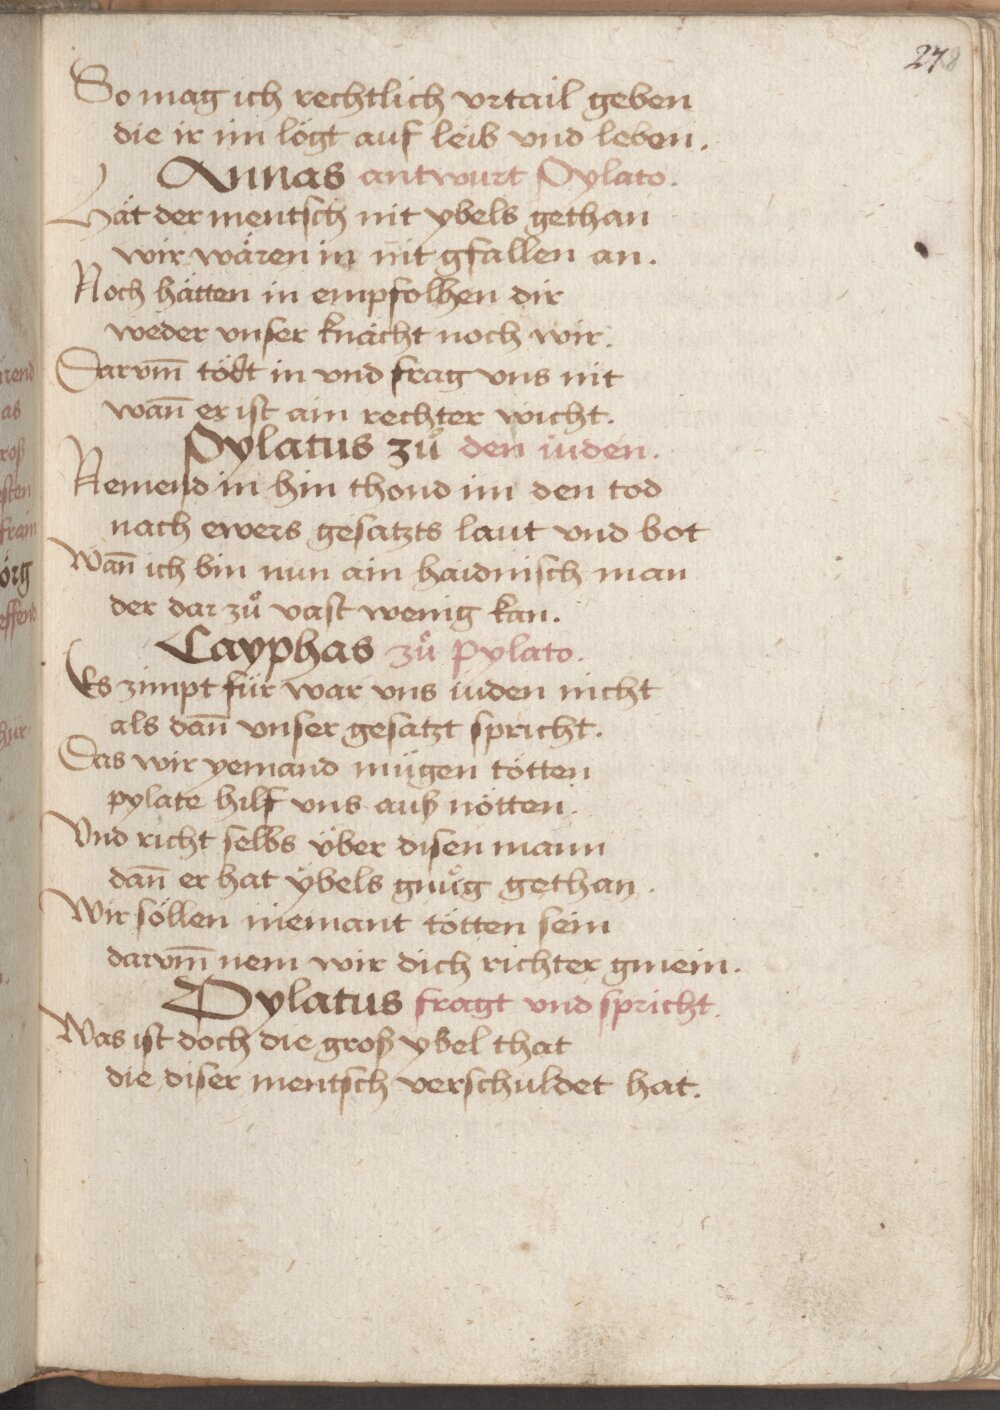 278
So mag ich rechtlich vrtail geben
die ir im lögt auf leib vnd leben.
Annas antwurt Pylato.
Hät der mentsch nit ybels gethan
wir wären in nit gfallen an.
Noch hätten in empfolhen dir
weder vnser knächt noch wir.
Darvm̄ tödt in vnd frag vns nit
wan̄ er ist ain rechter wicht.
Pylatus zuͦ den iuden.
Nemend in hin thond im den tod
nach ewers gesatzts laut vnd bot
Wan̄ ich bin nun ain haidnisch man
der dar zuͦ vast wenig kan.
Cayphas zuͦ Pylato.
Es zimpt für war vns iuden nicht
als dan̄ vnser gesatzt spricht.
Das wir yemand mügen tötten
pylate hilf vns auß nötten.
Vnd richt selbs über disen mann
dan̄ er hat ÿbels gnuͦg gethan.
Wir söllen niemant tötten sein
darvm̄ nem wir dich richter gmein.
Pylatus fragt vnd spricht.
Was ist doch die groß ybel that
die diser mentsch verschuldet hat.